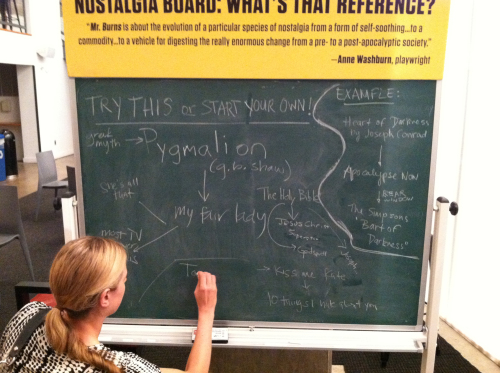 NOSTALGIA BOARD: WHAT'S THAT REFERENCE?
"Mr. Burns is about the evolution of a particular species of nostalgia from a form of self-soothing...to a
commodity...to a vehicle for digesting the really enormous change from a pre- to a post-apocalyptic society."
—Anne Washburn, playwright
TRY THIS or START YOUR OWN!
great
myth
Pygmalion
(g.b. shaw)
my fair lady
she's all
that
most TV
The Holy
Jesus Christ
Superstar
Kiss me Kate
10 things I hate about you
To
EXAMPLE:
Heart of Darkness
by Joseph Conrad
Apocalypse Now
The Simpsons
"Bart of
Darkness"